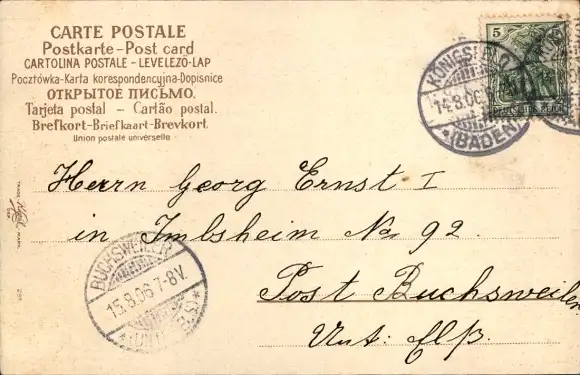 CARTE POSTALE
Postkarte-Post card
CARTOLINA POSTALE - LEVELEZŐ-LAP
Pocztówka-Karta korespondencyjna-Dopisnice
ОТКРЫТОЕ ПИСЬМО.
Tarjeta postal - Cartão postal.
Brefkort-Briefkaart-Brevkort
Union postale universelle
5
DEUTSCHES REICH
14.8.06
*(BADEN)
Herrn Georg Ernst I
in Imbsheim No 92.
Post Buchsweiler
Unt: Elß.
BUCHSWEILER
15.8.06 7-8V.
TRADE MARK